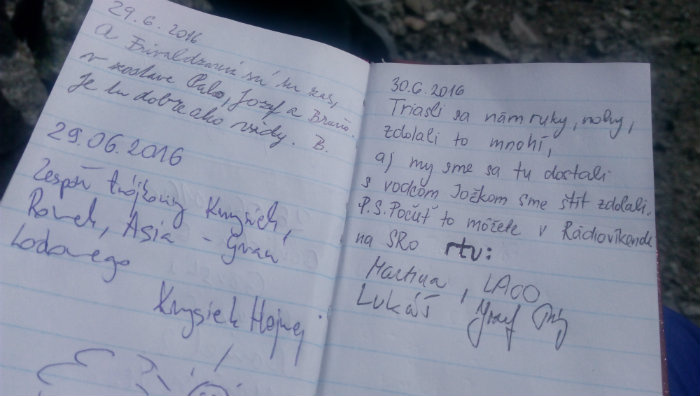 29.6.2016
A su tu zas,
v zostave Palo, Jozef a Bruno.
Je tu dobre ako vždy. B.
29.06.2016
Zespół trójkowy Krzysiek,
Romek, Asia - Grań
Lodowego
Krzysiek
30.6.2016
Triasli sa nám ruky, nohy,
zdolali to mnohí,
aj my sme sa tu dostali
s vodcom Jožkom sme štít zdolali.
P.S. Počuť to môžete v Rádiovíkende
na SRo rtv:
Martina, LACO
Lukáš Jozef